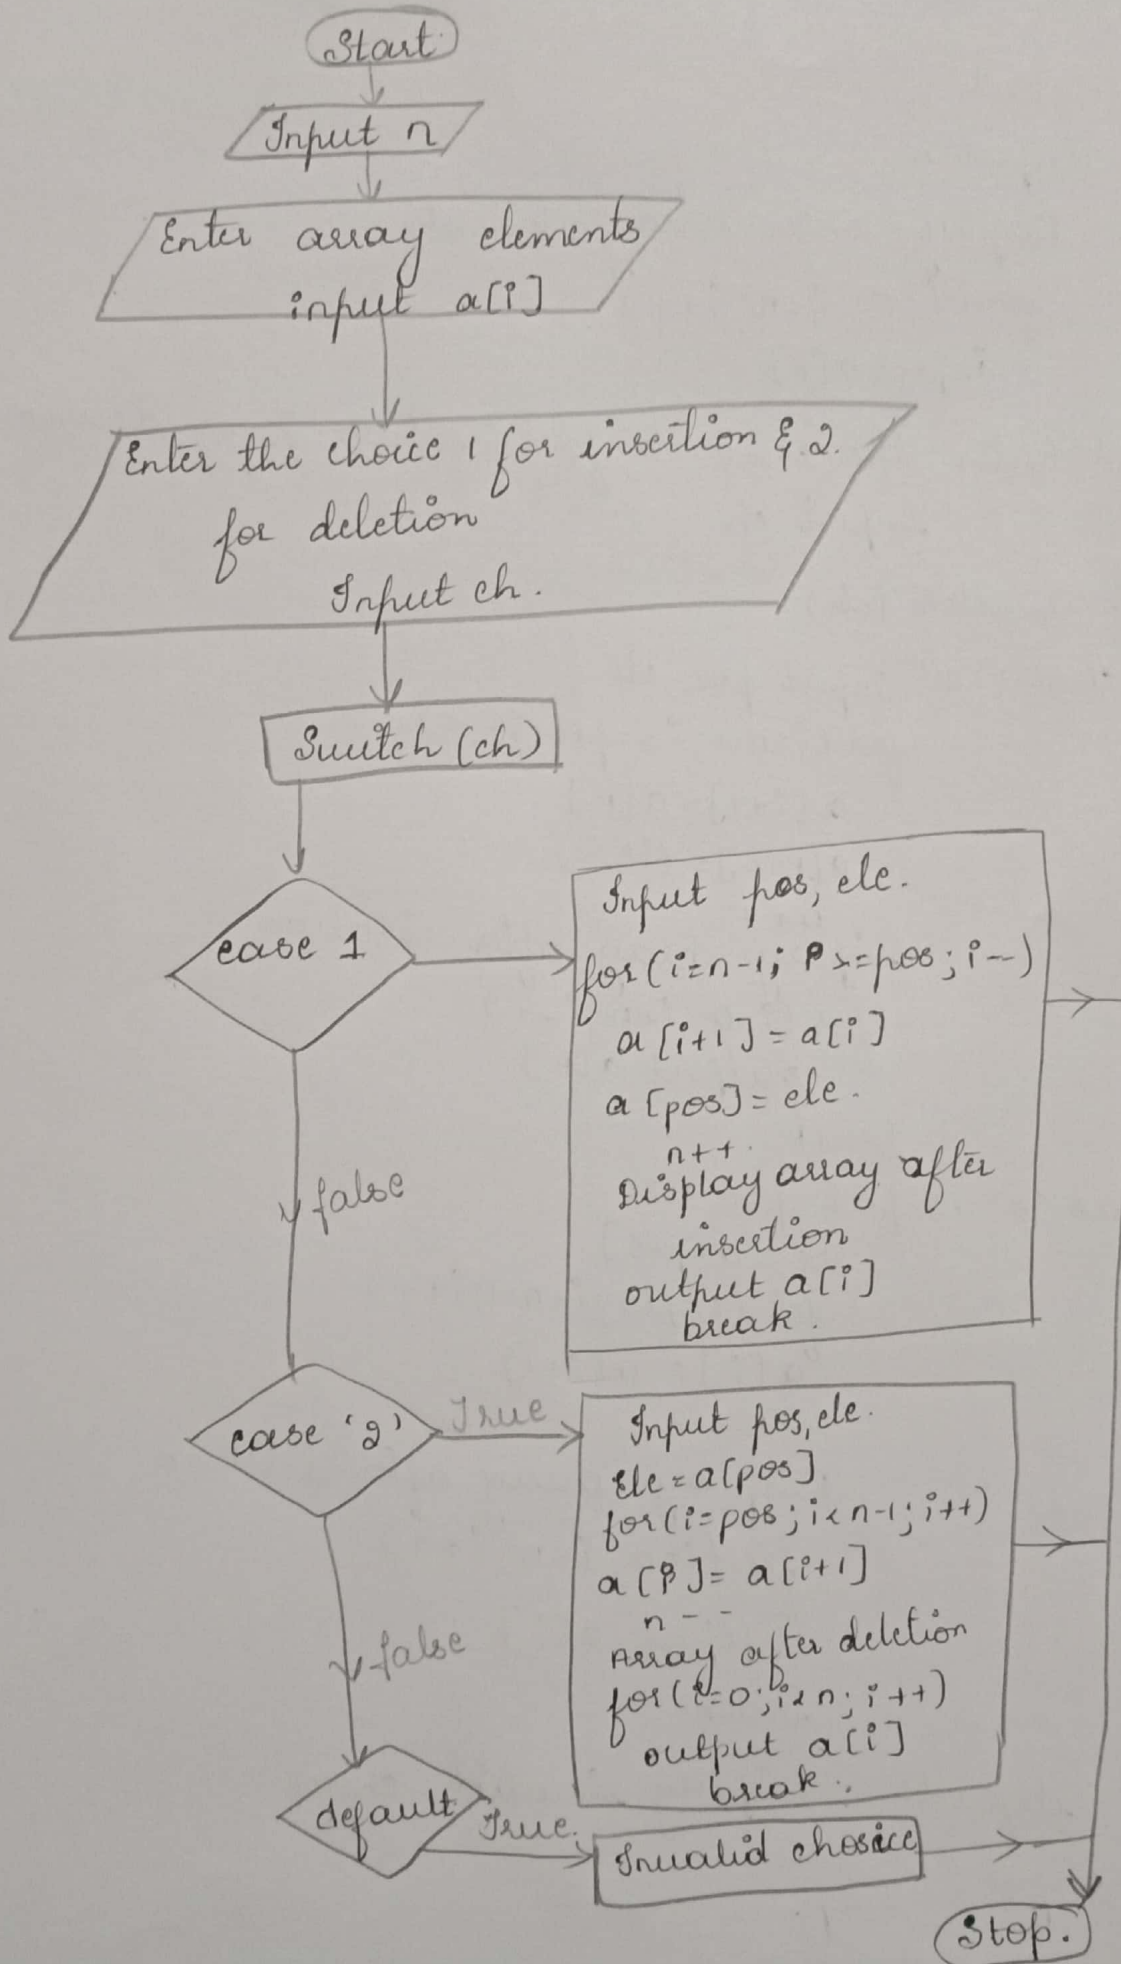 Start
Input n
Enter array elements
input a[i]
Enter the choice 1 for insertion & 2.
for deletion
Input ch.
Switch (ch)
case 1
Input pos, ele.
for(i=n-1; i>=pos; i--)
a[i+1] = a[i]
a[pos] = ele.
n++.
Display array after
insertion
output a[i]
break.
false
case '2'
True
Input pos, ele.
Ele = a[pos]
for(i=pos; i<n-1; i++)
a[i] = a[i+1]
n--
Array after deletion
for(i=0; i<n; i++)
output a[i]
break.
false
default
True.
Invalid chosice
Stop.